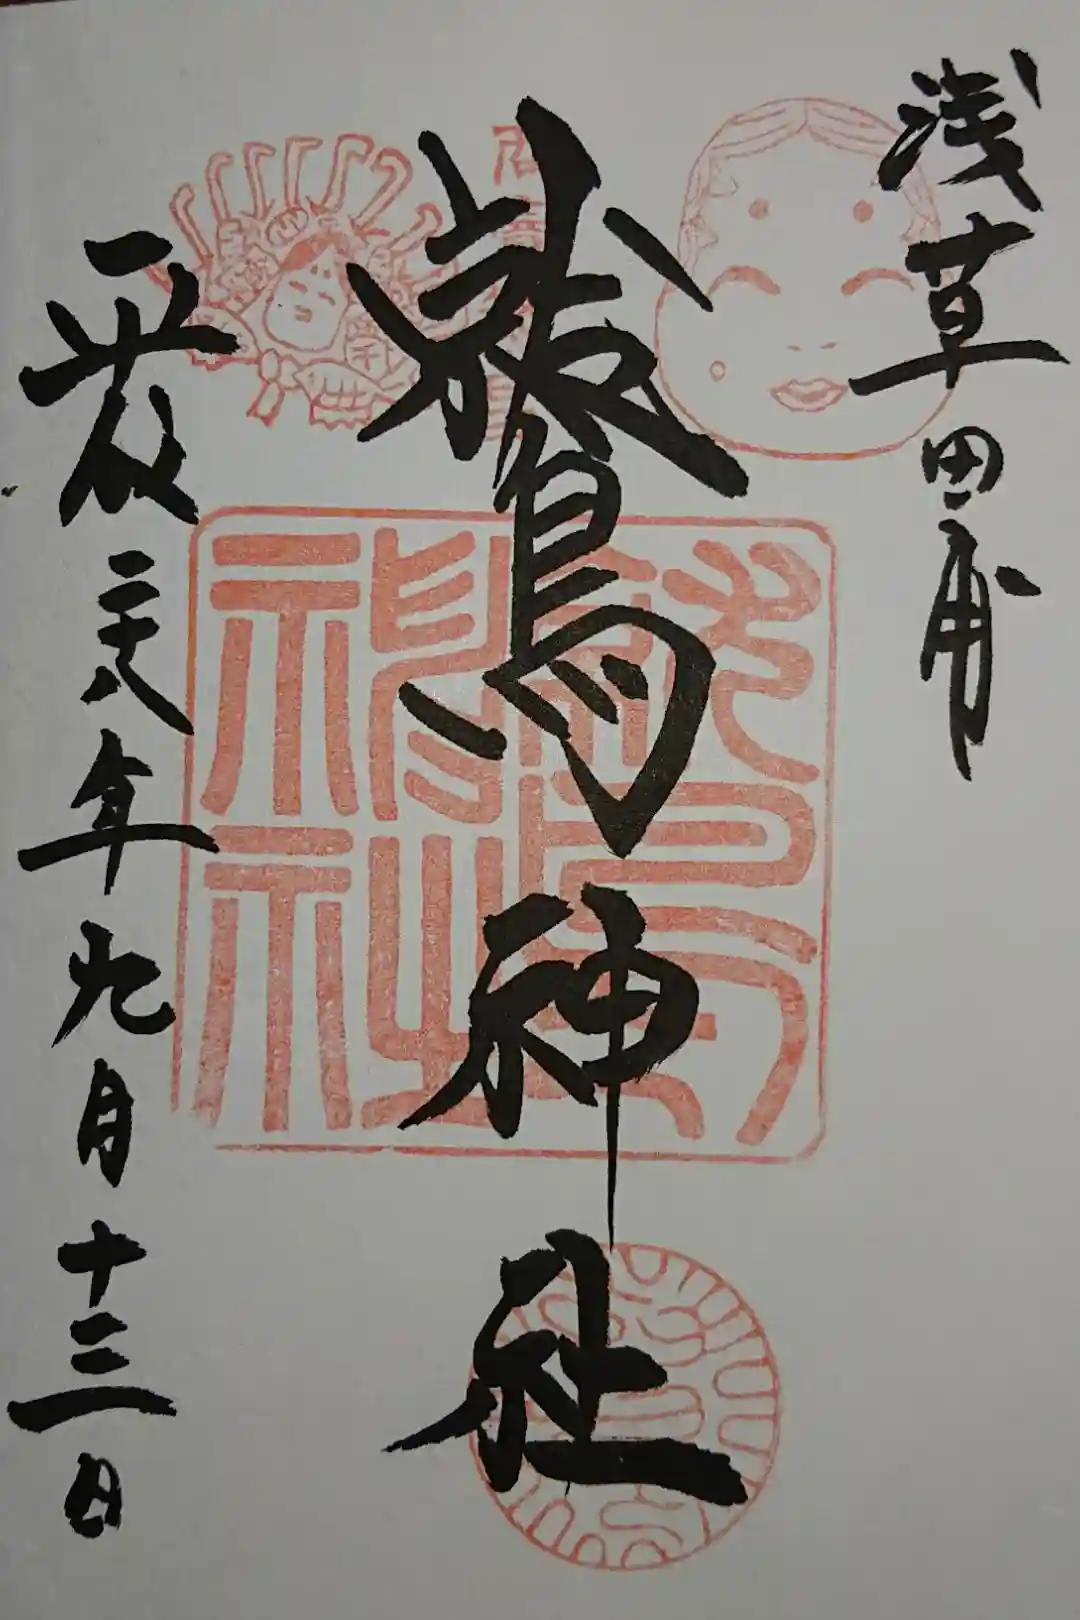 浅草田甫
鷲神社
平成二十八年九月十三日
鷲
神社